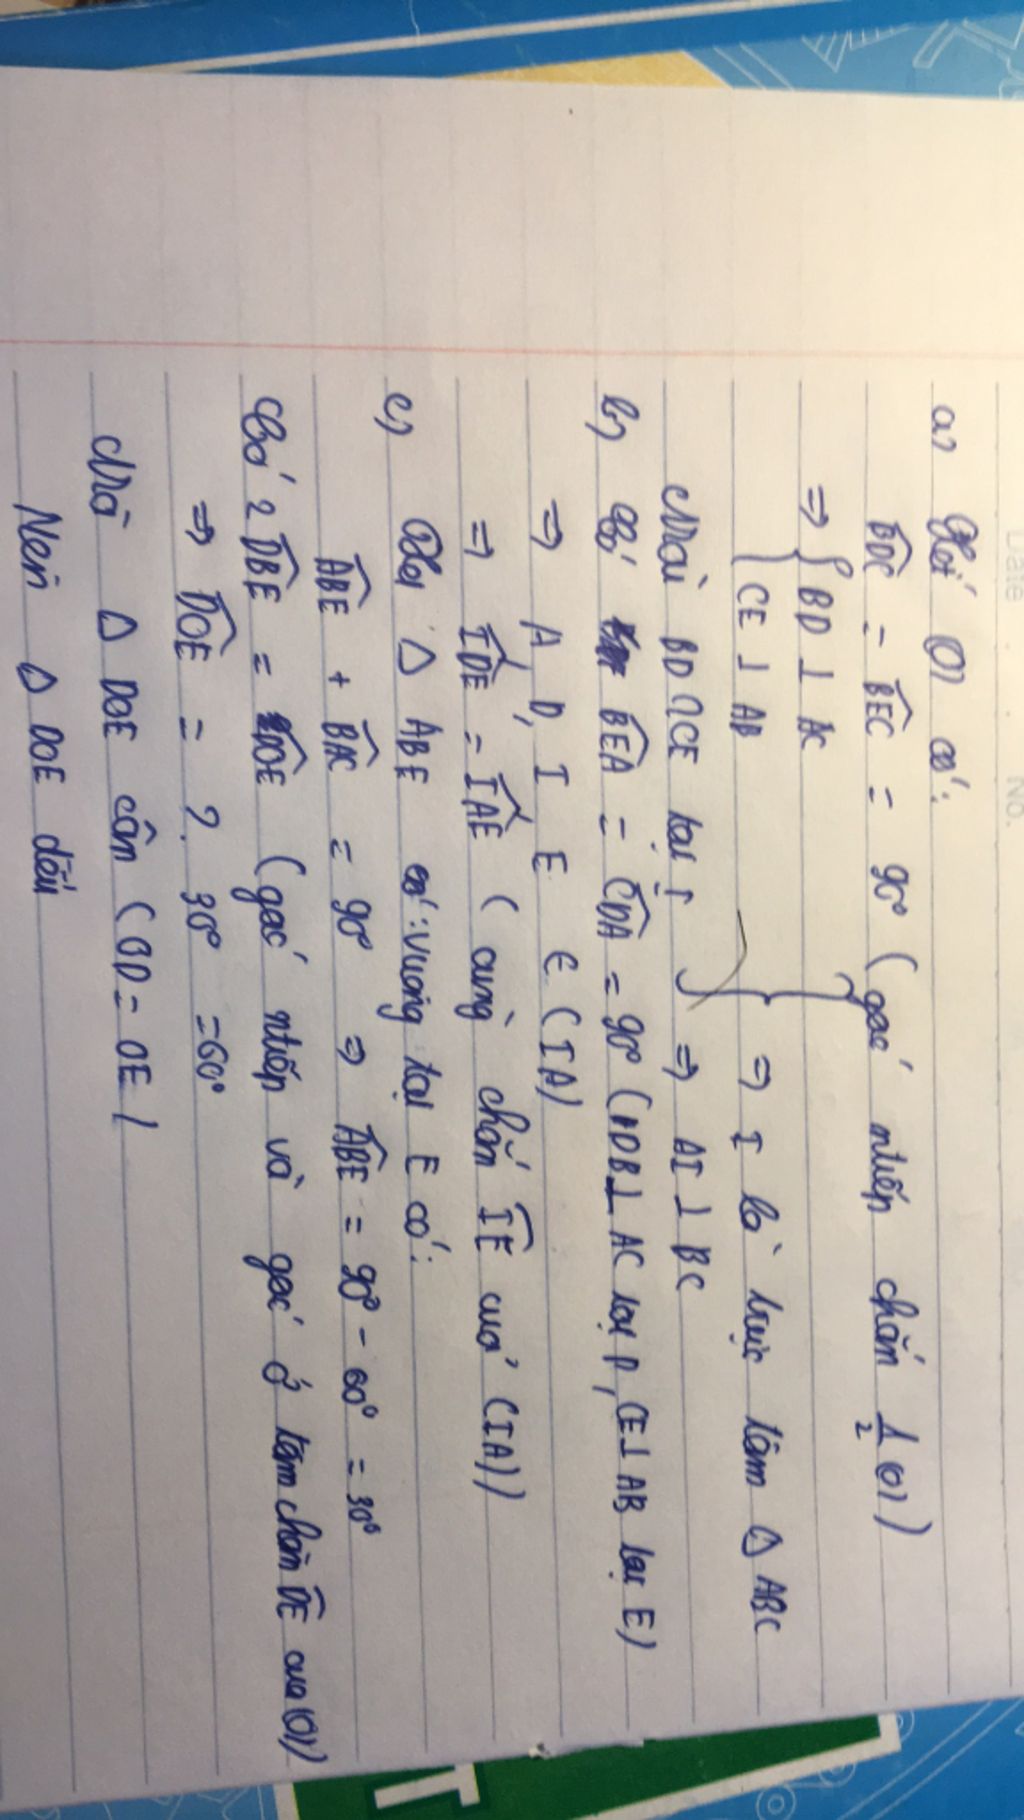 Date . . No.
a) Xét (O) có:
BDC = BEC = 90° (góc ntiếp chắn 1/2 (O))
=> { BD ⊥ AC
{ CE ⊥ AB } => I là trực tâm △ ABC
Mà BD ∩ CE tại I } => AI ⊥ BC
b) Có BEA = CDA = 90° (DB ⊥ AC tại D, CE ⊥ AB tại E)
=> A, D, I E ∈ (IA)
=> IDE = IAE (cùng chắn IE của (IA))
c) Xét △ ABE có: vuông tại E có:
ABE + BAC = 90° => ABE = 90° - 60° = 30°
Có 2 DBE = DOE (góc ntiếp và góc ở tâm chắn DE của (O))
=> DOE = 2. 30° = 60°
Mà △ DOE cân (OD = OE)
Nên △ DOE đều